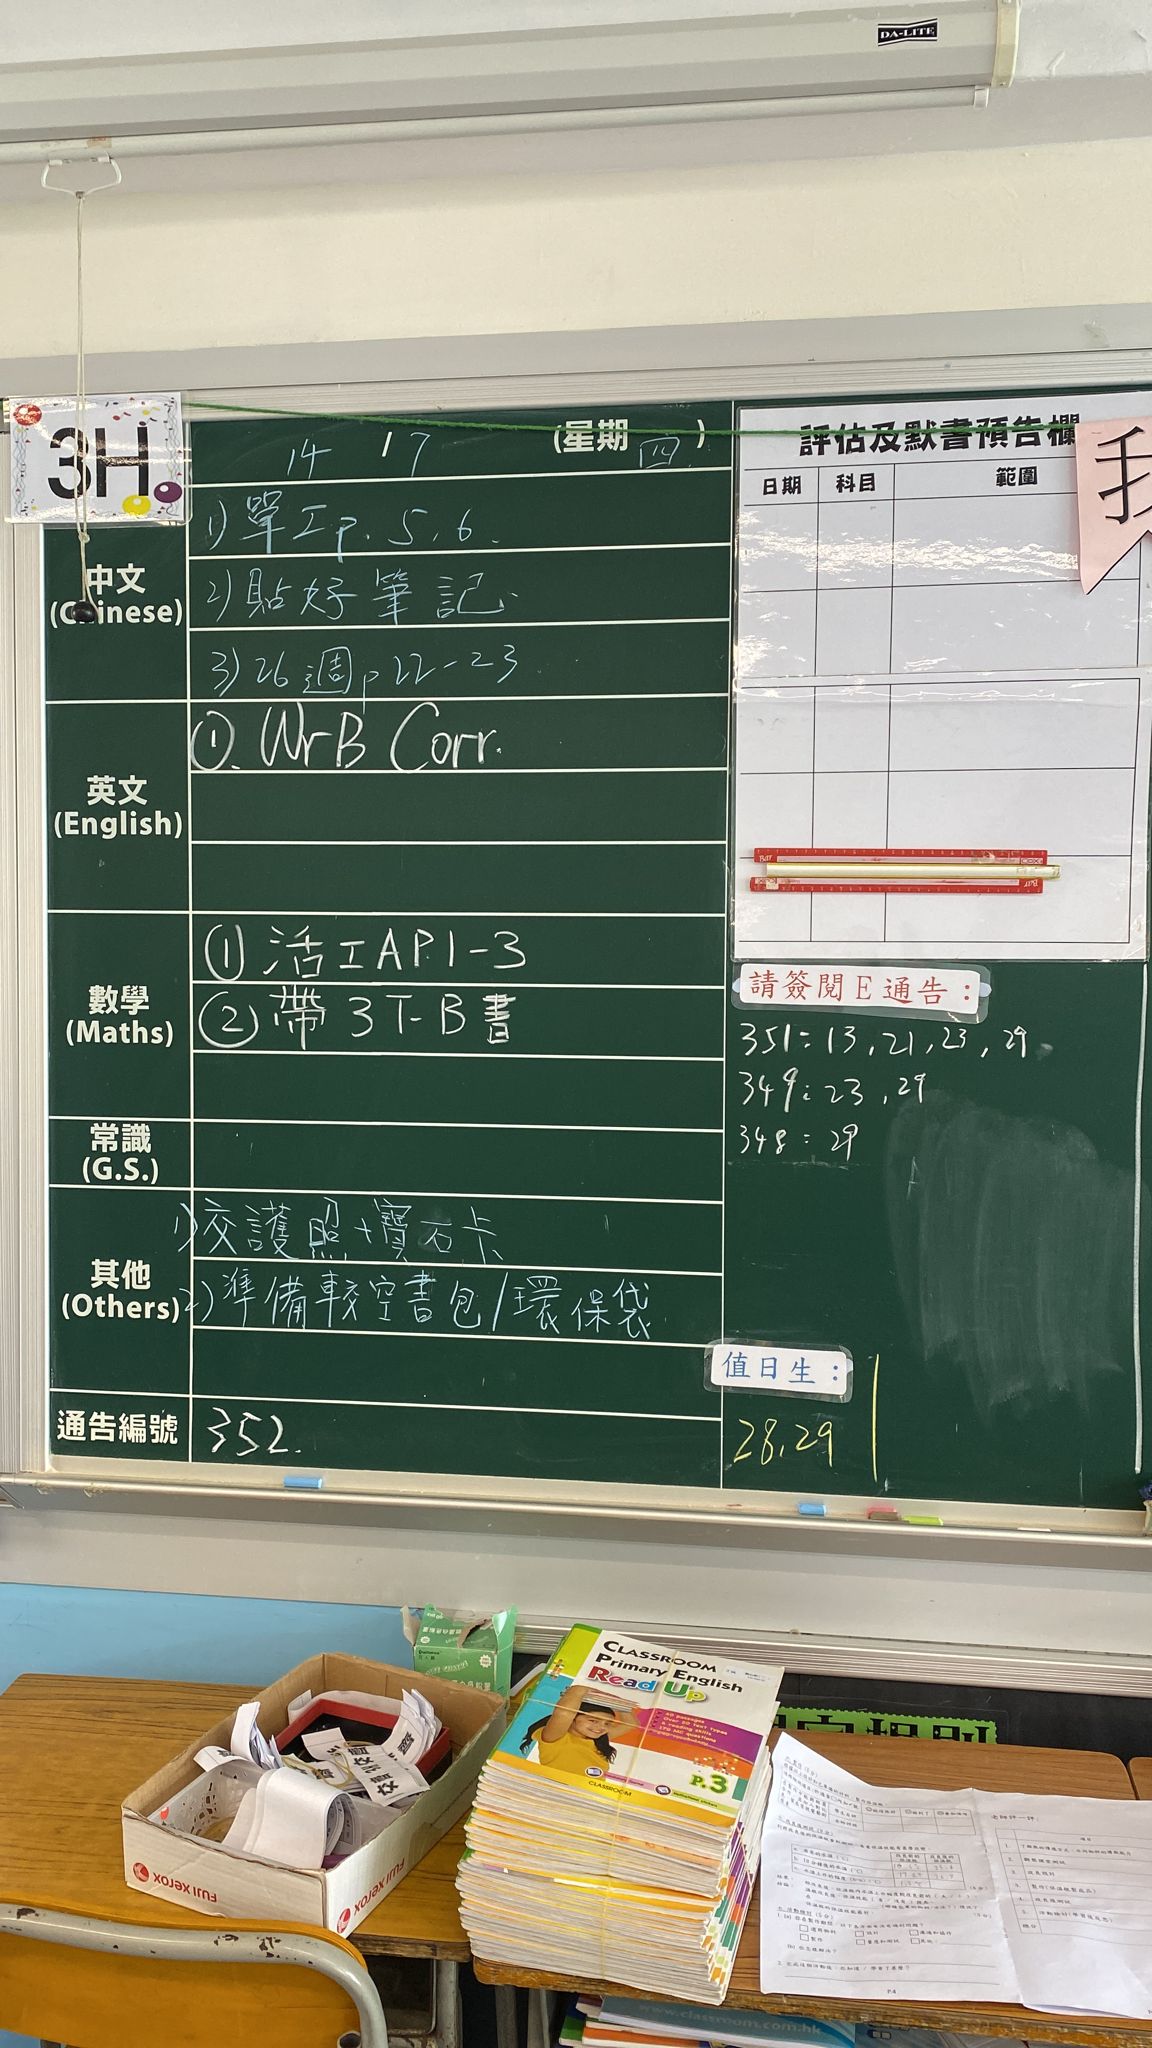 DA-LITE
3H
14 / 7 (星期 四 )
中文
(Chinese)
1) 單工 p. 5, 6.
2) 貼好筆記.
3) 26週 p 22-23
英文
(English)
①. WrB Corr.
數學
(Maths)
① 活工A P.1-3
② 帶 3T-B書
常識
(G.S.)
其他
(Others)
1) 交護照+寶石卡
2) 準備較空書包/環保袋
通告編號
352.
評估及默書預告欄
日期 科目 範圍
我
請簽閱E通告:
351: 13, 21, 23, 29
349: 23, 29
348: 29
值日生:
28, 29
CLASSROOM
Primary English
Read Up
P.3
CLASSROOM
FUJI XEROX
FUJI XEROX
老師評一評
www.classroom.com.hk